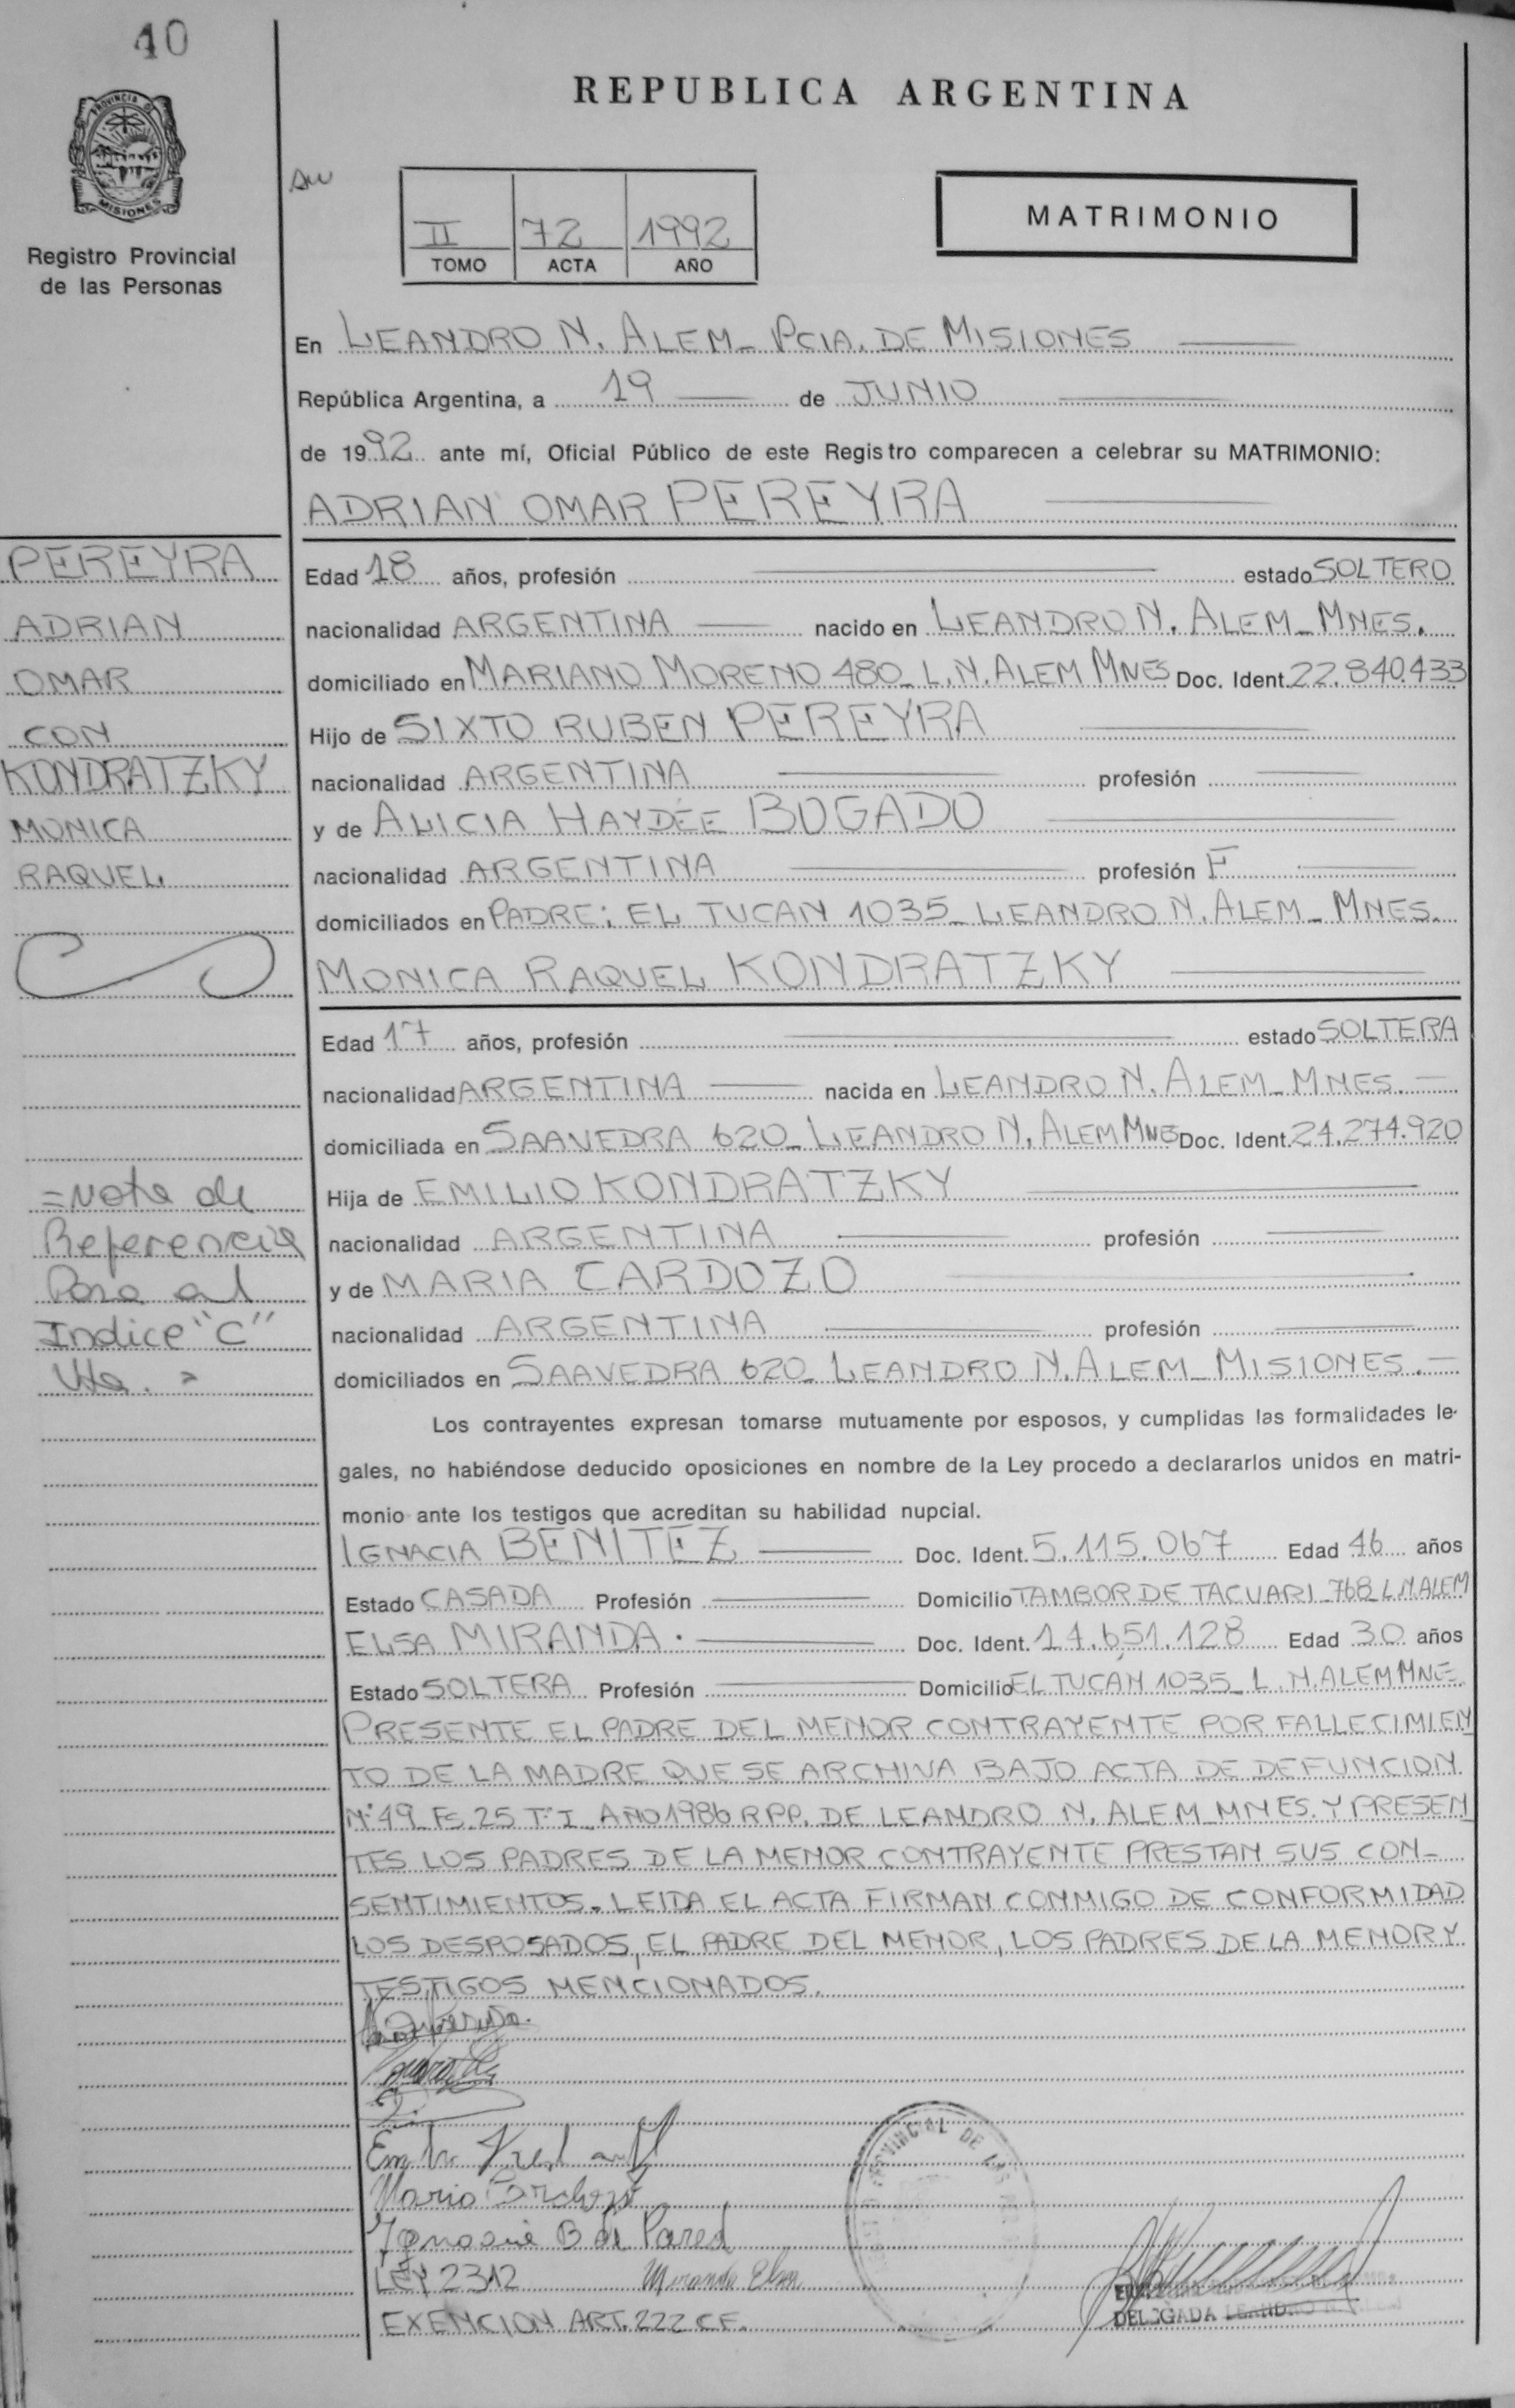 40
REPUBLICA ARGENTINA
PROVINCIA D
MISIONES
Registro Provincial
de las Personas
II 72 1992
TOMO ACTA AÑO
MATRIMONIO
En LEANDRO N. ALEM_ PCIA. DE MISIONES
República Argentina, a 19 de JUNIO
de 1992 ante mí, Oficial Público de este Registro comparecen a celebrar su MATRIMONIO:
ADRIAN OMAR PEREYRA
PEREYRA
ADRIAN
OMAR
CON
KONDRATZKY
MONICA
RAQUEL
Edad 18 años, profesión estado SOLTERO
nacionalidad ARGENTINA nacido en LEANDRO N. ALEM_MNES.
domiciliado en MARIANO MORENO 480_ L.N. ALEM MNES Doc. Ident. 22.840.433
Hijo de SIXTO RUBEN PEREYRA
nacionalidad ARGENTINA profesión
y de ALICIA HAYDÉE BOGADO
nacionalidad ARGENTINA profesión F
domiciliados en PADRE: EL TUCAN 1035_ LEANDRO N. ALEM_MNES.
MONICA RAQUEL KONDRATZKY
Edad 17 años, profesión estado SOLTERA
nacionalidad ARGENTINA nacida en LEANDRO N. ALEM_MNES.
domiciliada en SAAVEDRA 620_ LEANDRO N. ALEM MNES Doc. Ident. 24.274.920
Hija de EMILIO KONDRATZKY
nacionalidad ARGENTINA profesión
y de MARIA CARDOZO
nacionalidad ARGENTINA profesión
domiciliados en SAAVEDRA 620_ LEANDRO N. ALEM_MISIONES.
=Nota de
Referencia
Para al
Indice "C"
Los contrayentes expresan tomarse mutuamente por esposos, y cumplidas las formalidades le-
gales, no habiéndose deducido oposiciones en nombre de la Ley procedo a declararlos unidos en matri-
monio ante los testigos que acreditan su habilidad nupcial.
IGNACIA BENITEZ Doc. Ident. 5.115.067 Edad 46 años
Estado CASADA Profesión Domicilio TAMBOR DE TACUARI_768_L.N.ALEM
ELSA MIRANDA. Doc. Ident. 14.651.128 Edad 30 años
Estado SOLTERA Profesión Domicilio EL TUCAN 1035_L.N.ALEM MNE
PRESENTE EL PADRE DEL MENOR CONTRAYENTE POR FALLECIMIEN
TO DE LA MADRE QUE SE ARCHIVA BAJO ACTA DE DEFUNCION
N°49_Fs.25 T°I_AÑO 1986 RPP. DE LEANDRO N. ALEM_MNES. Y PRESEN
TES LOS PADRES DE LA MENOR CONTRAYENTE PRESTAN SUS CON-
SENTIMIENTOS. LEIDA EL ACTA FIRMAN CONMIGO DE CONFORMIDAD
LOS DESPOSADOS, EL PADRE DEL MENOR, LOS PADRES DE LA MENOR Y
TESTIGOS MENCIONADOS.
LEY 2312 Miranda Elsa
EXENCION ART. 222 C.F.
DELEGADA LEANDRO N. ALEM